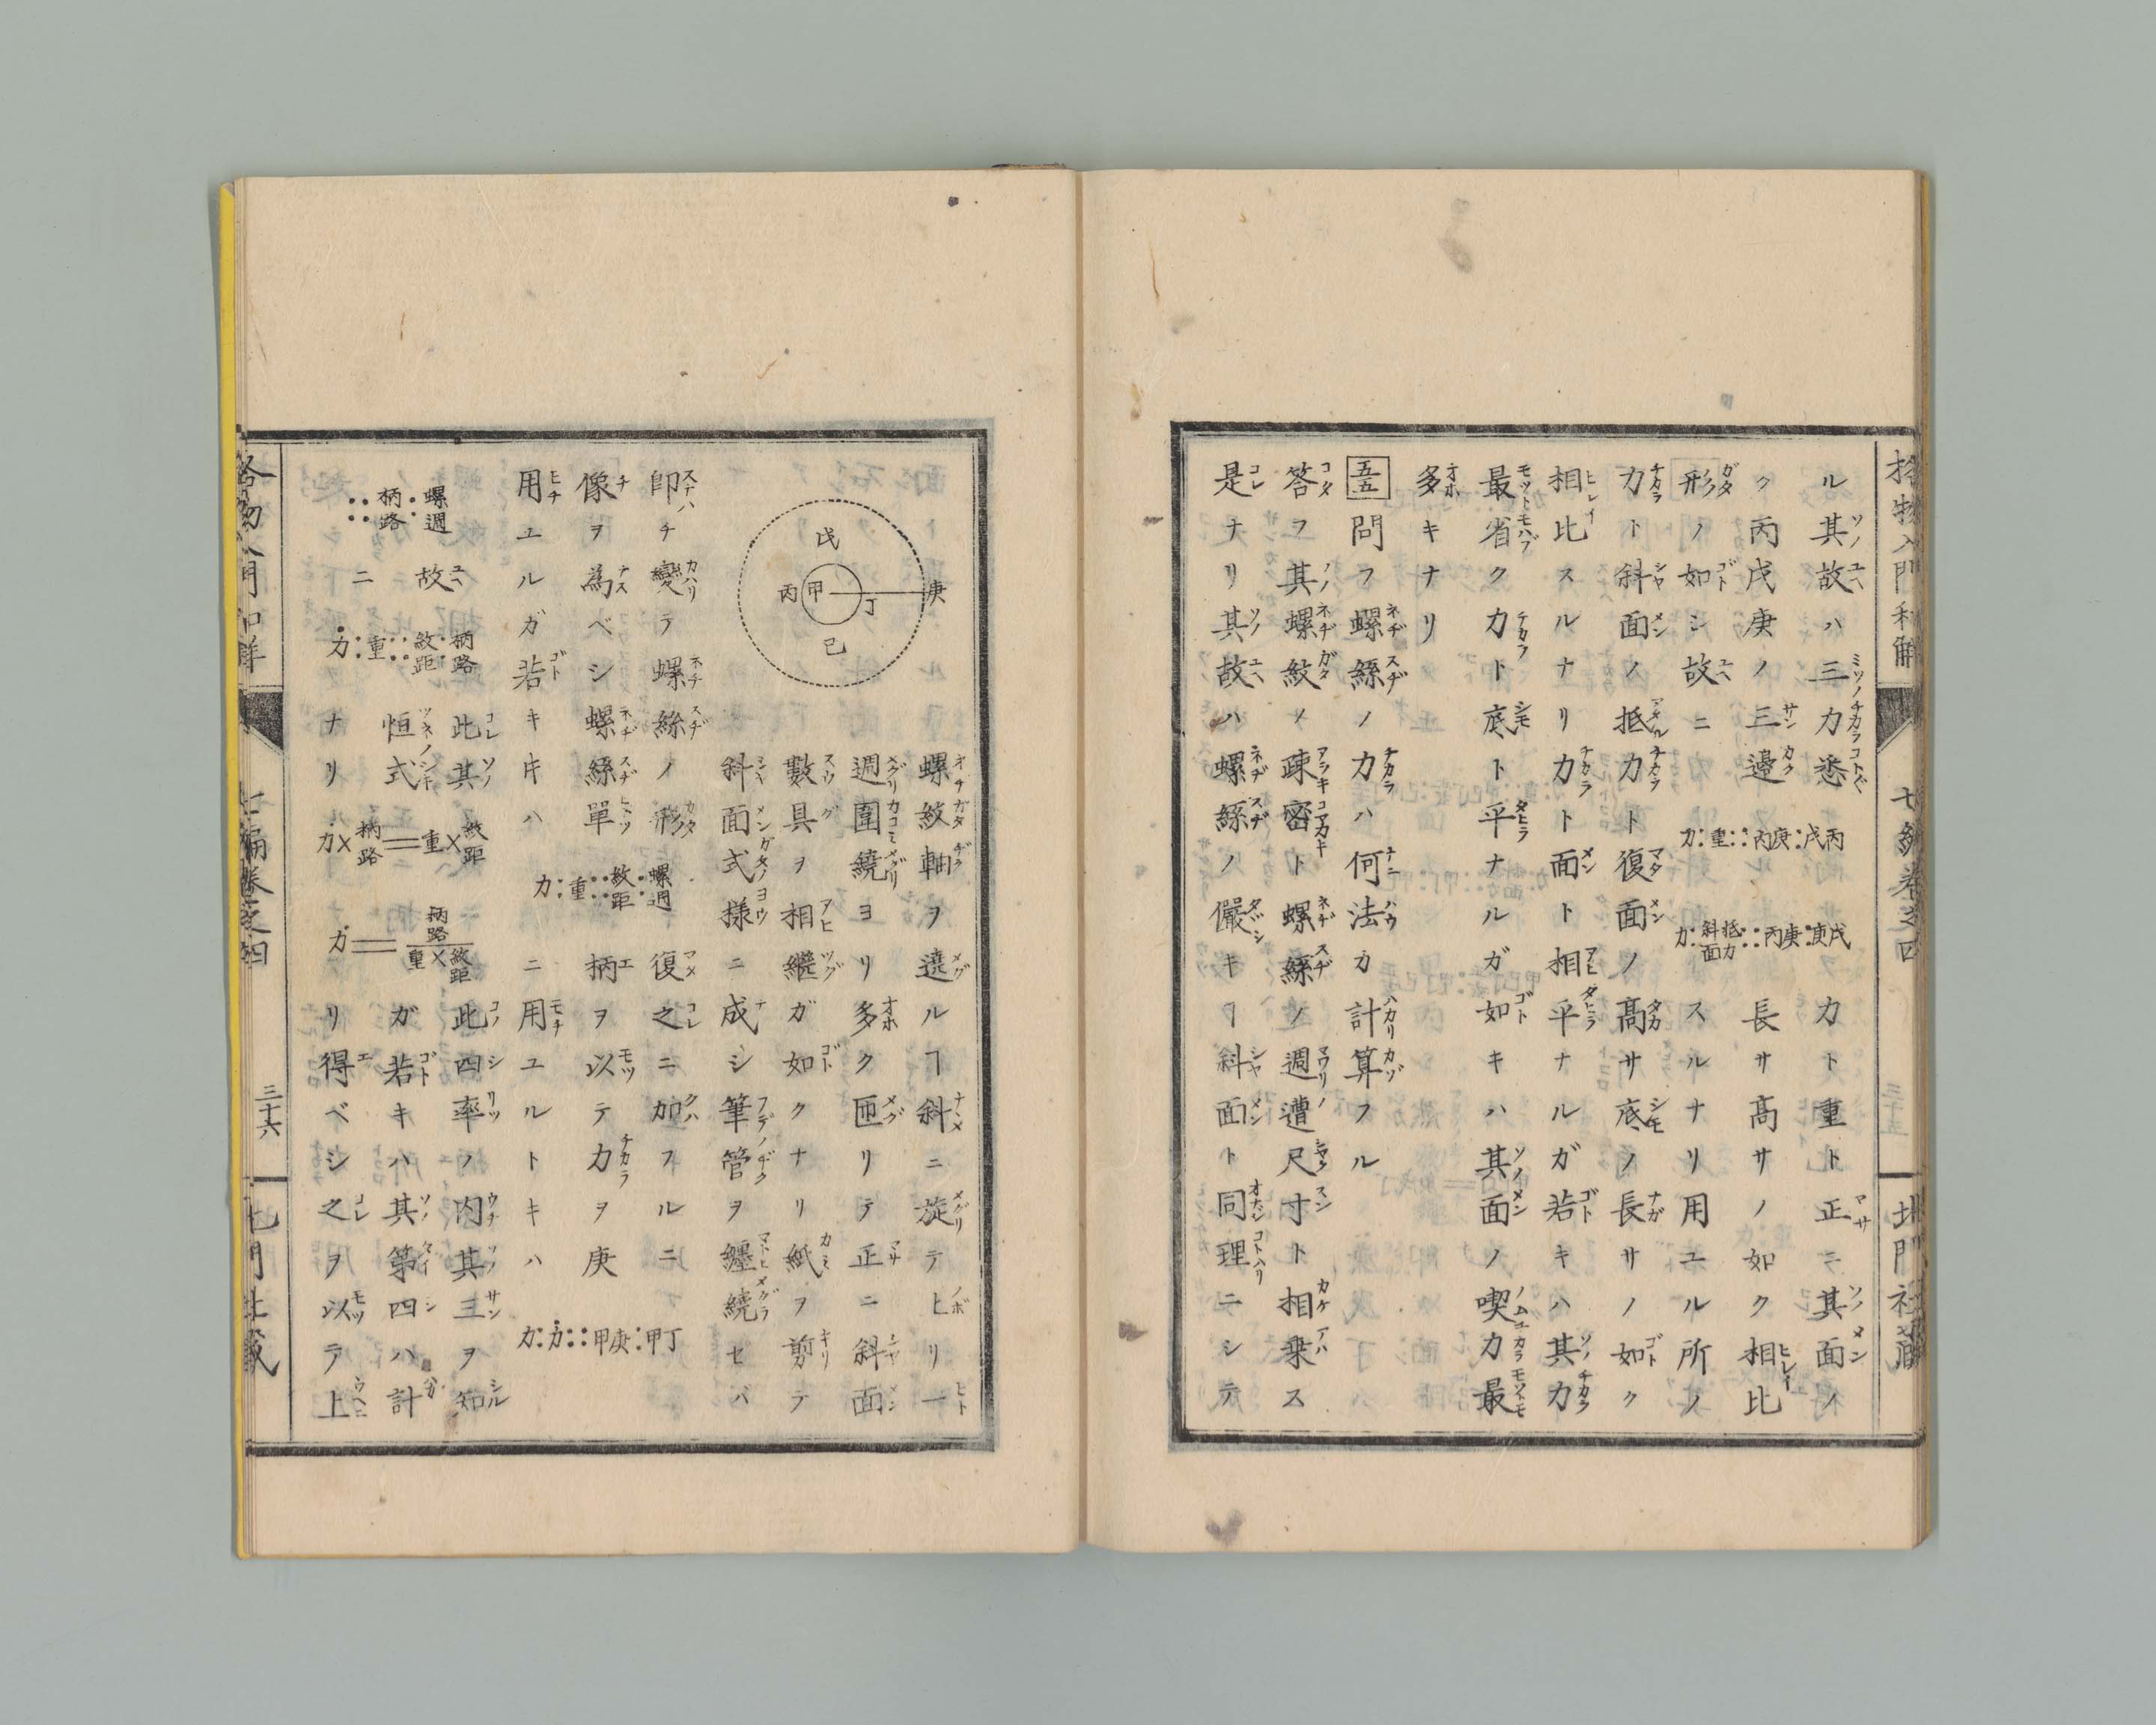 格物入門和解
七編卷之四
北門社藏
ル其故ハ三力悉 力:重::丙庚:戊丙 力ト重ト正ニ其面ノ
ク丙戊庚ノ三邉 力:斜面抵力::丙庚:庚戊 長サ髙サノ如ク相比
形ノ如シ故ニ スルナリ用ユル所ノ
力ト斜面ノ抵力ト復面ノ髙サ底ノ長サノ如ク
相比スルナリ力ト面ト相平ナルガ若キハ其力
最省ク力ト底ト平ナルガ如キハ其面ノ喫力最
多キナリ
五五 問フ螺絲ノ力ハ何法カ計算フル
答フ其螺紋ノ疎密ト螺絲ノ週遭尺寸ト相乗ス
是ナリ其故ハ螺絲ノ儼キヿ斜面ト同理ニシテ
螺紋軸ヲ遶ルヿ斜ニ旋テ上リ一
週圍繞ヨリ多ク匝リテ正ニ斜面
數具ヲ相繼ガ如クナリ紙ヲ剪テ
斜面式様ニ成シ筆管ヲ纏繞セバ
戊
庚
丙 甲 丁
己
卽チ變テ螺絲ノ形 復之ニ加フルニ
像ヲ為ベシ螺絲單 力:重::紋距:螺週 柄ヲ以テ力ヲ庚
用ユルガ若キ時ハ ニ用ユルトキハ 力:力::甲庚:甲丁
::柄路:螺週 故ニ 力:重::紋距:柄路 此其 此四率ノ内其三ヲ知
恒式 ガ若キハ其第四ハ計
ナリ 力×柄路=重×紋距 力=重×紋距 柄路 リ得ベシ之ヲ以テ上
格物入門和解
七編卷之四
三十六
北門社藏